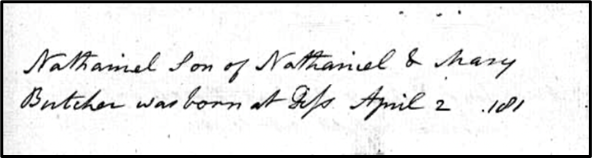 Nathaniel Son of Nathaniel & Mary
Butcher was born at Diſs. April 2 .181